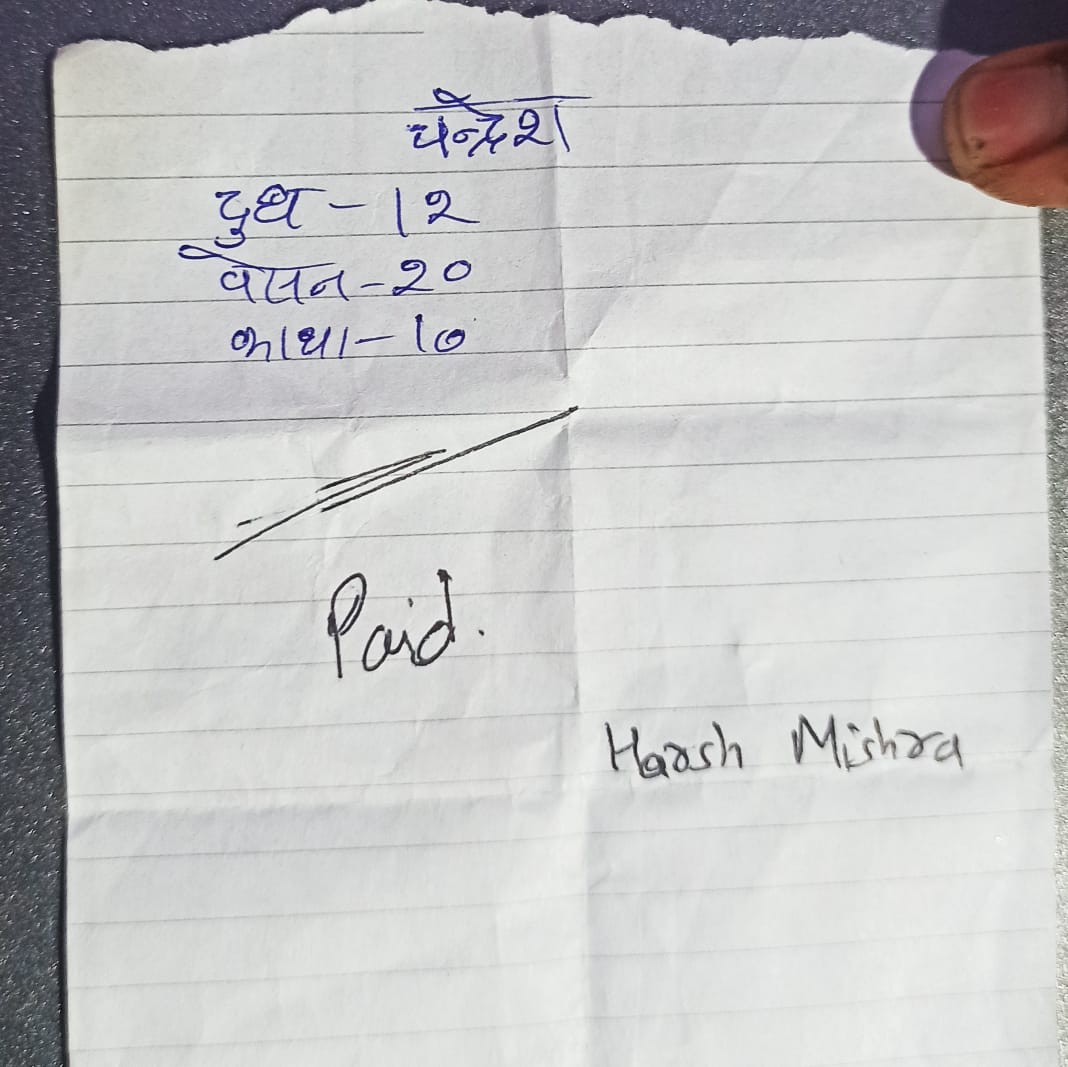 चन्द्रेश
दुध - 12
वेसन - 20
काथा - 10
Paid.
Harsh Mishra